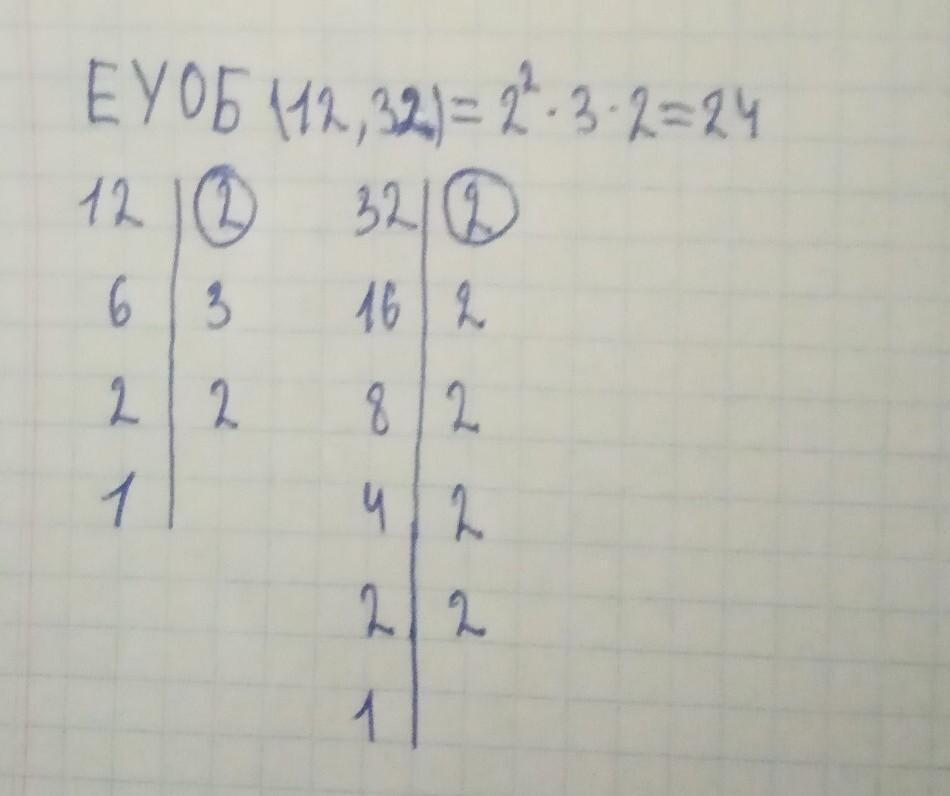 ЕУОБ (12,32)=2²·3·2=24
12 | 2 32 | 2
6 | 3 16 | 2
2 | 2 8 | 2
1 | 4 | 2
2 | 2
1 |